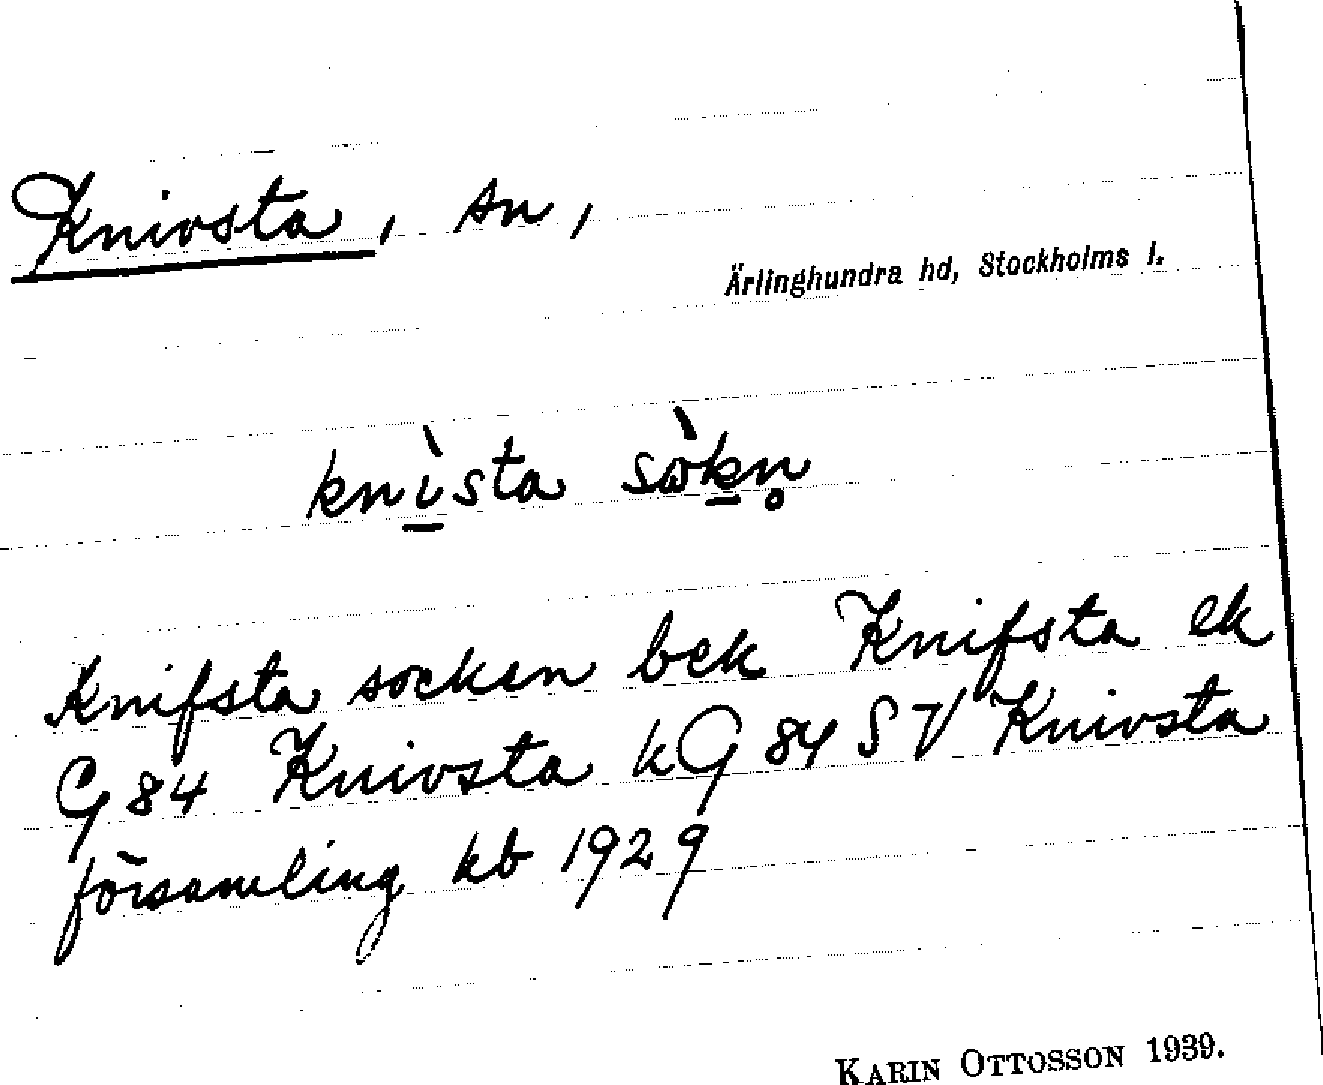 Knivsta, sn,
Ärlinghundra hd, Stockholms l.
knìsta sὼkn̥
Knifsta socken bek Knifsta ek
G 84 Knivsta kG 84 SV Knivsta
församling kb 1929
KARIN OTTOSSON 1939.